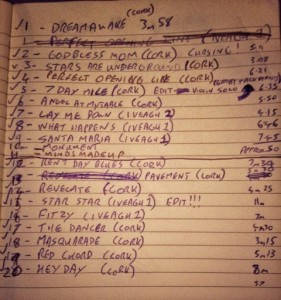 (CORK)
1 - DREAMAWAKE 3m58
1 - PERFECT OPENING LINE (LIVEAGH 2)
2 - GODBLESS MOM (CORK) CURSING! 5m
3 - STARS ARE UNDERGROUND (CORK)
4 - PERFECT OPENING LINE (CORK) 6-21
5 - 7 DAY MILE (CORK) EDIT VIOLIN SOLO 6-35
6 - ANGEL AT MY TABLE (CORK) 5-50
7 - LAY ME DOWN (LIVEAGH 2) 4-15
8 - WHAT HAPPENS (LIVEAGH 2) 6-46
9 - SANTA MARIA (LIVEAGH 2) 7-45
10 - MONUMENT APPROX 50
11 - MINDS MADE UP
12 - RENT DAY BLUES (CORK) 7m30
13 - PAVEMENT (CORK)
14 - REVELATE (CORK) 4m25
15 - STAR STAR (LIVEAGH 2) EDIT!!! 11m
16 - FITZY (LIVEAGH 2) 7m
17 - THE DANCER (CORK) 4m30
18 - MASQUARADE (CORK) 3m15
19 - RED CHORD (CORK) 5m13
20 - HEYDAY (CORK) 8m